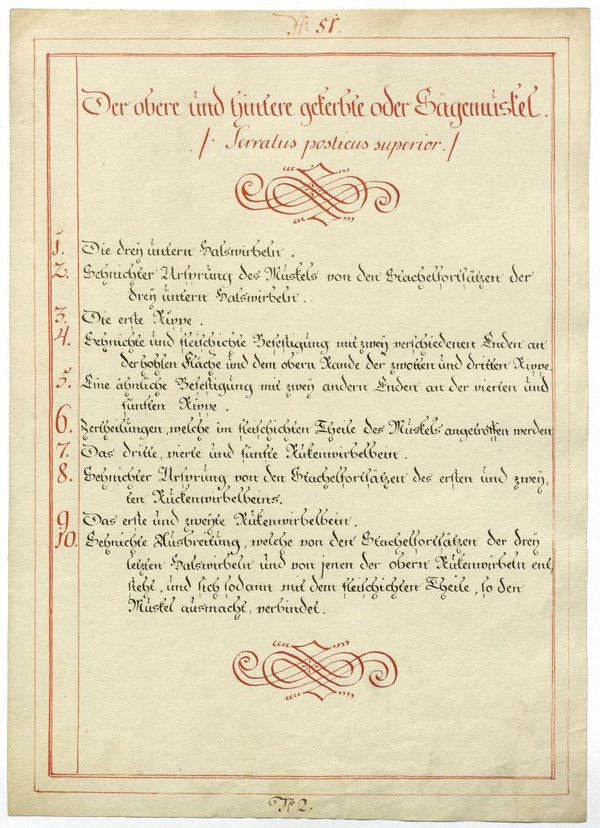 N: 51.
Der obere und hintere gekerbte oder Sägemuskel.
/. Serratus posticus superior./
1. Die drey untern Halswirbeln.
2. Sehnichter Ursprung des Muskels von den Stachelfortsätzen der
drey untern Halswirbeln.
3. Die erste Rippe.
4. Sehnichte und fleischichte Befestigung mit zwey verschiedenen Enden an
der hohlen Fläche und dem obern Rande der zwoten und dritten Rippe.
5. Eine ähnliche Befestigung mit zwey andern Enden an der vierten und
fünften Rippe.
6. Zertheilungen, welche im fleischichten Theile des Muskels angetroffen werden
7. Das dritte, vierte und fünfte Rükenwirbelbein.
8. Sehnichter Ursprung von den Stachelfortsätzen des ersten und zwey-
ten Rückenwirbelbeins.
9. Das erste und zweyte Rükenwirbelbein.
10. Sehnichte Ausbreitung, welche von den Stachelfortsätzen der drey
letzten Halswirbeln und von jenen der obern Rükenwirbeln ent-
steht, und sich sodann mit dem fleischichten Theile, so den
Muskel ausmacht, verbindet.
N 2.